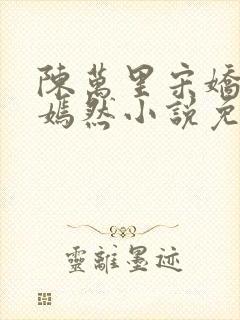 陳萬里宋嬌
嫣然小說免
靈離墨迹